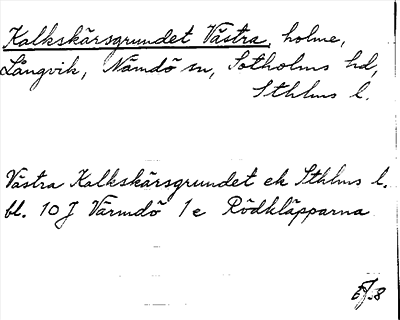 Kalkskärsgrundet Västra, holme,
Långvik, Nämdö sn, Sotholms hd,
Sthlms l.
Västra Kalkskärsgrundet ek Sthlms l.
bl. 10 J Värmdö 1 e Rödkläpparna